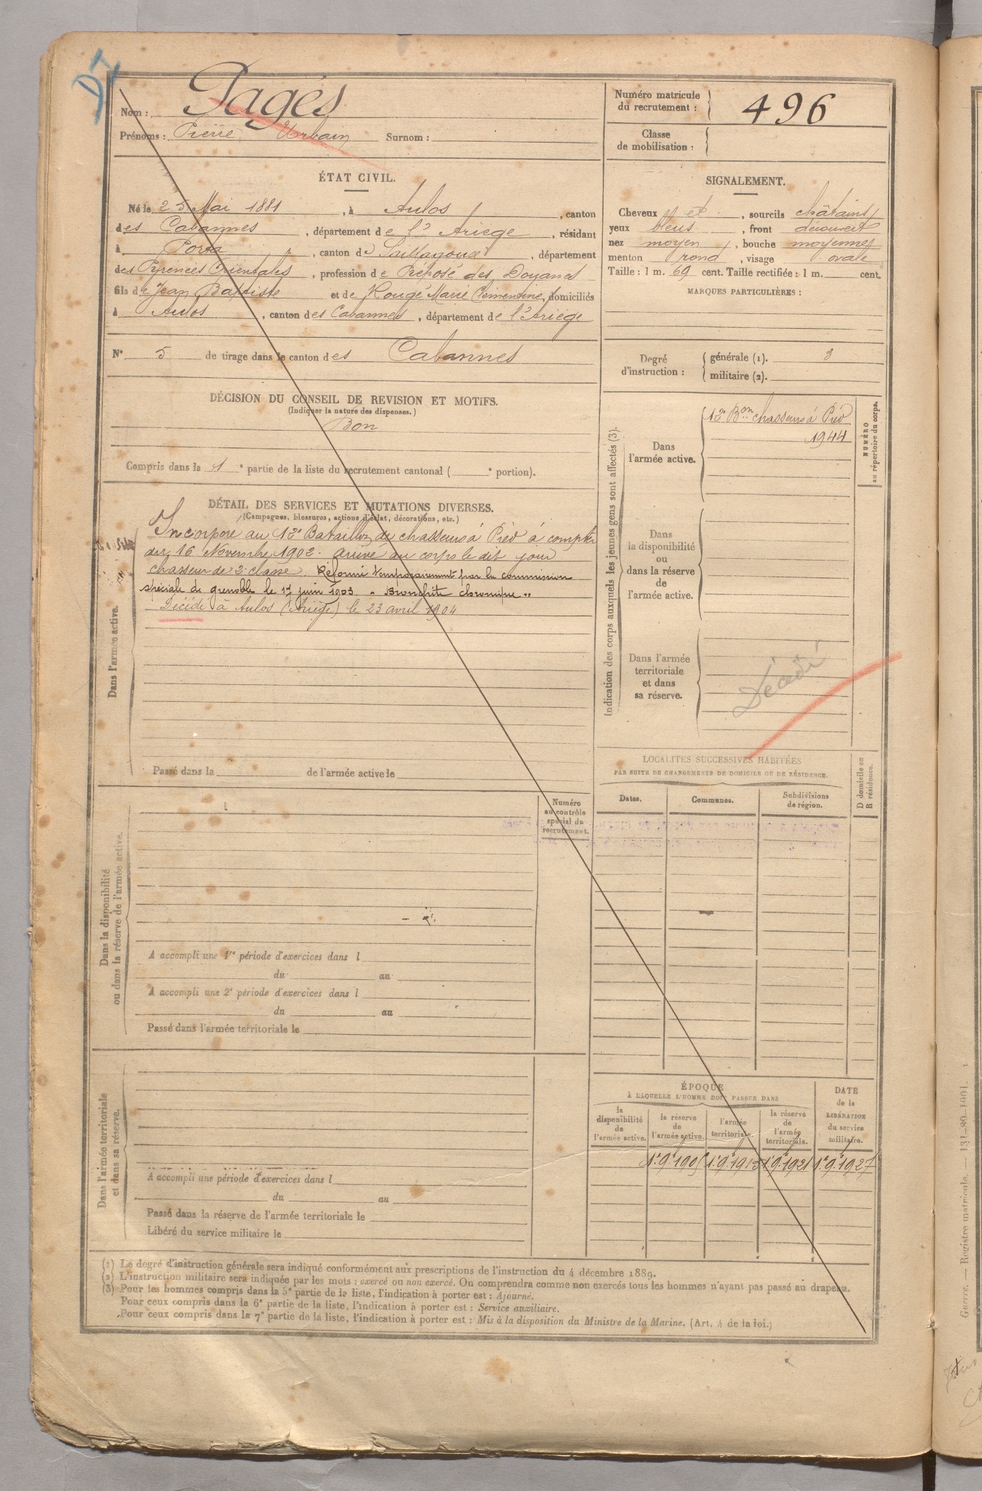 Nom : Pagès
Prénoms : Pierre Urbain Surnom :
Numéro matricule
du recrutement : 496
Classe
de mobilisation :
ÉTAT CIVIL.
Né le 25 Mai 1881, à Aulos, canton
des Cabannes, département de l'Ariège, résidant
à Porta, canton de Saillagouse, département
des Pyrénées Orientales, profession de Préposé des Douanes
fils de Jean Baptiste et de Rougé Marie Clémentine, domiciliés
à Aulos, canton des Cabannes, département de l'Ariège
N° 5 de tirage dans le canton des Cabannes
SIGNALEMENT.
Cheveux et, sourcils châtains
yeux bleus, front découvert
nez moyen, bouche moyenne
menton rond, visage ovale
Taille : 1 m. 69 cent. Taille rectifiée : 1 m. cent.
MARQUES PARTICULIÈRES :
Degré
d'instruction :
générale (1). 3
militaire (2).
DÉCISION DU CONSEIL DE REVISION ET MOTIFS.
(Indiquer la nature des dispenses.)
Bon
Compris dans la 1e partie de la liste du recrutement cantonal ( e portion).
DÉTAIL DES SERVICES ET MUTATIONS DIVERSES.
(Campagnes, blessures, actions d'éclat, décorations, etc.)
Dans l'armée active.
Incorporé au 12e Bataillon de chasseurs à Pied à compter
du 16 Novembre 1902. arrivé au corps le dit jour
chasseur de 2e classe. Réformé temporairement par la commission
spéciale de grenoble le 17 juin 1903 "Bronchite chronique"
Décédé à Aulos (Ariège) le 23 avril 1904
Passé dans la de l'armée active le
Indication des corps auxquels les jeunes gens sont affectés (3).
NUMÉRO
au répertoire du corps.
Dans
l'armée active.
12e Bon chasseurs à Pied
1944
Dans
la disponibilité
ou
dans la réserve
de
l'armée active.
Dans l'armée
territoriale
et dans
sa réserve.
Décédé
LOCALITÉS SUCCESSIVES HABITÉES
PAR SUITE DE CHANGEMENTS DE DOMICILE OU DE RÉSIDENCE.
Dates.
Communes.
Subdivisions
de région.
D domicile ou
R résidence.
Numéro
au contrôle
spécial du
recrutement.
Dans la disponibilité
ou dans la réserve de l'armée active.
A accompli une 1re période d'exercices dans l
du au
A accompli une 2e période d'exercices dans l
du au
Passé dans l'armée territoriale le
Dans l'armée territoriale
et dans sa réserve.
A accompli une période d'exercices dans l
du au
Passé dans la réserve de l'armée territoriale le
Libéré du service militaire le
ÉPOQUE
À LAQUELLE L'HOMME DOIT PASSER DANS
la
disponibilité
de
l'armée active.
la réserve
de
l'armée active.
l'armée
territoriale.
la réserve
de
l'armée
territoriale.
DATE
de la
LIBÉRATION
du service
militaire.
1.9.1905 1.9.1915 1.9.1921 1.9.1927
(1) Le degré d'instruction générale sera indiqué conformément aux prescriptions de l'instruction du 4 décembre 1889.
(2) L'instruction militaire sera indiquée par les mots : exercé ou non exercé. On comprendra comme non exercés tous les hommes n'ayant pas passé au drapeau.
(3) Pour les hommes compris dans la 5e partie de la liste, l'indication à porter est : Ajourné.
Pour ceux compris dans la 6e partie de la liste, l'indication à porter est : Service auxiliaire.
Pour ceux compris dans la 7e partie de la liste, l'indication à porter est : Mis à la disposition du Ministre de la Marine. (Art. 4 de la loi.)